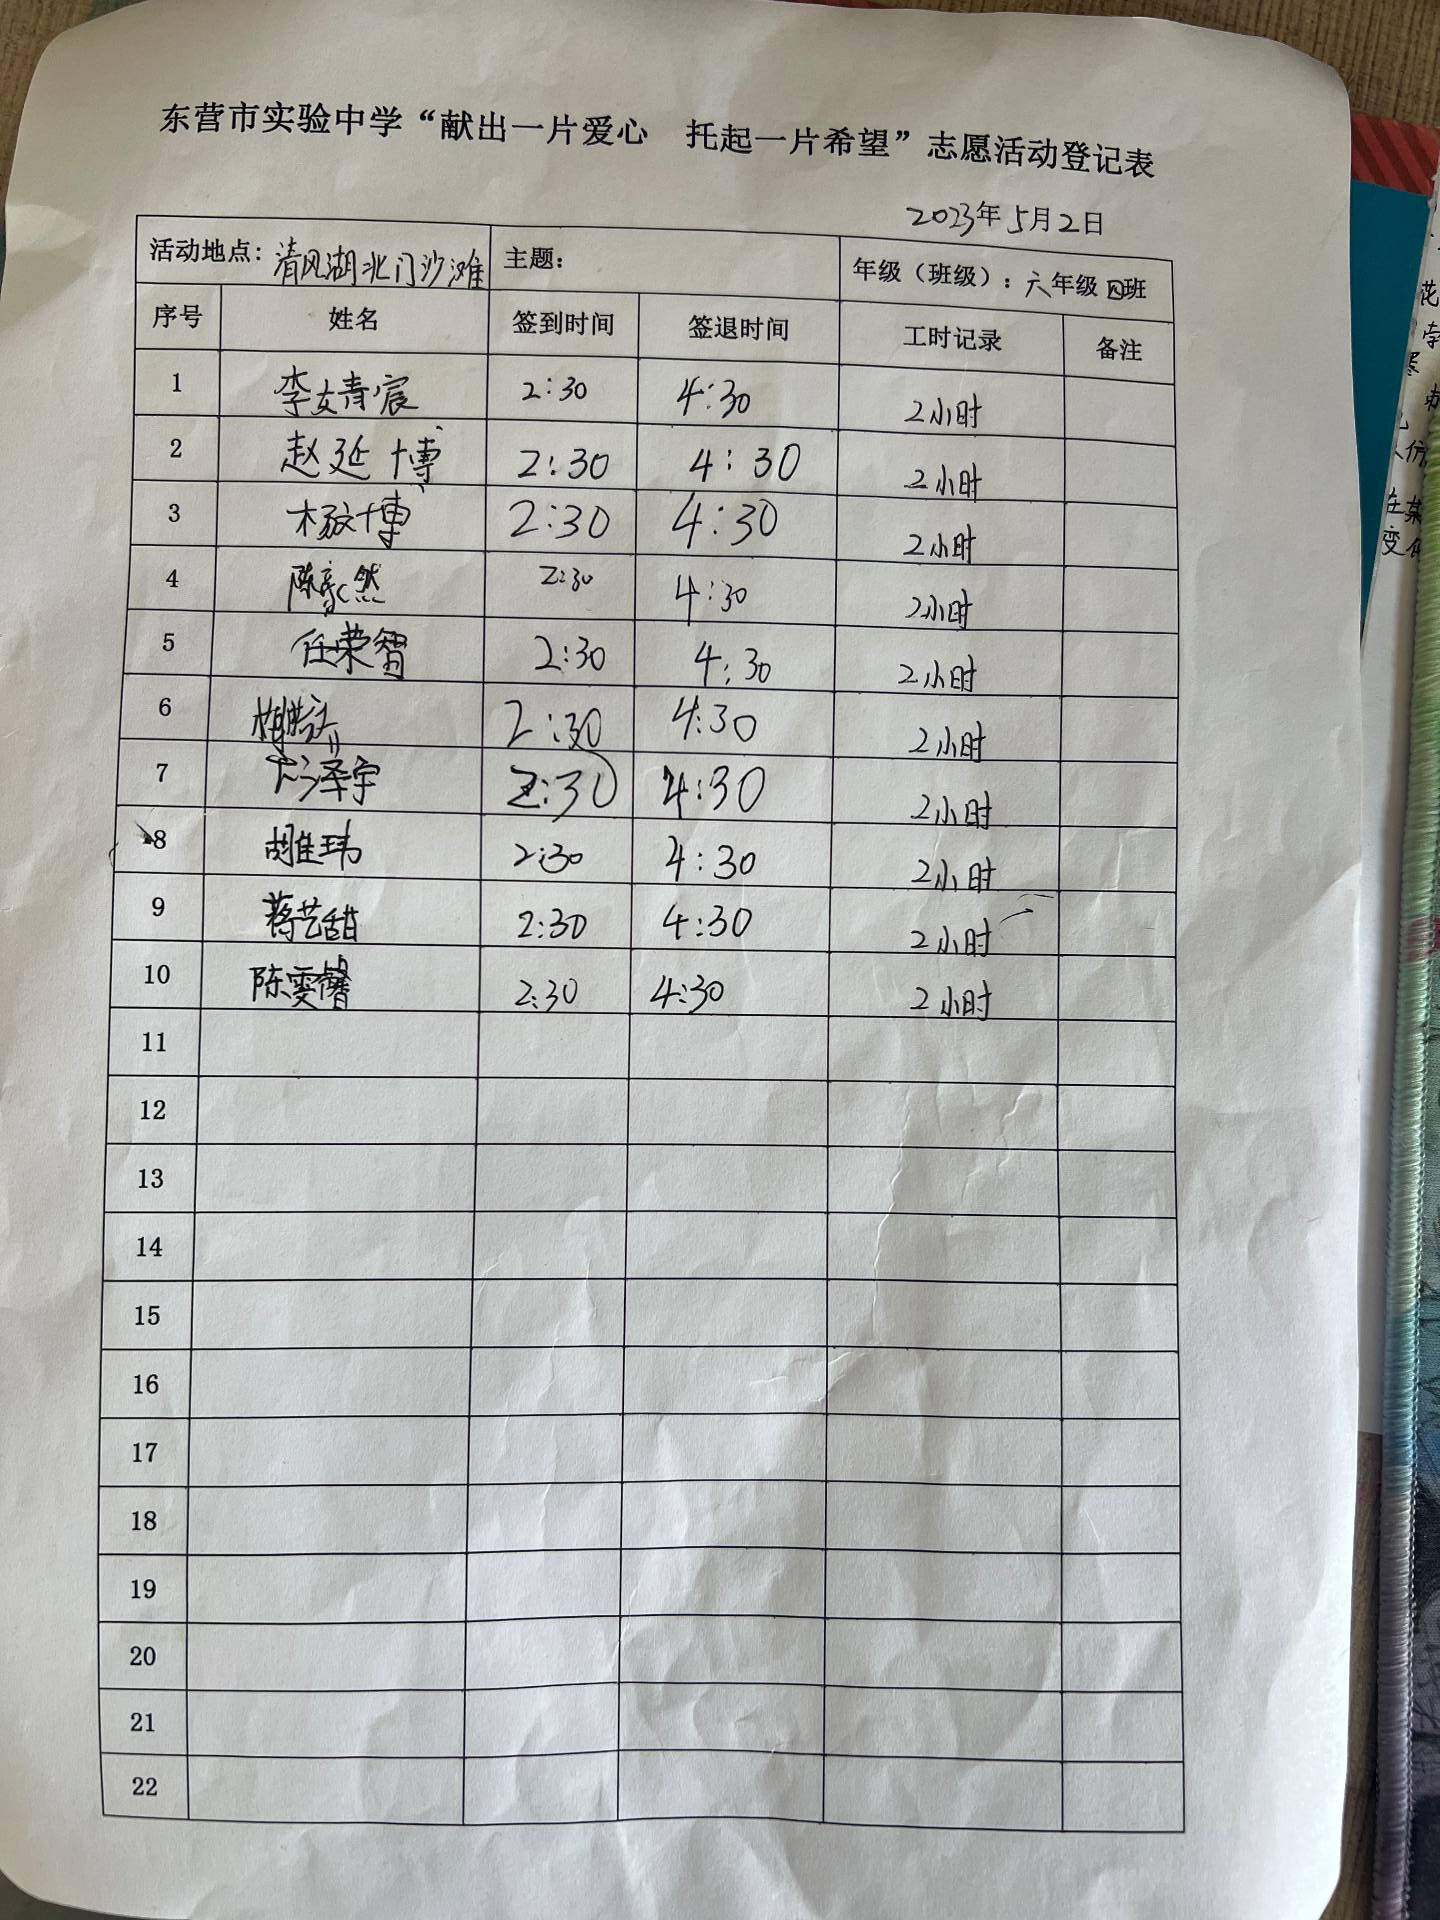 东营市实验中学“献出一片爱心 托起一片希望”志愿活动登记表
2023年5月2日
活动地点：清风湖北门沙滩 主题： 年级（班级）：六年级四班
序号 姓名 签到时间 签退时间 工时记录 备注
1 李婧宸 2:30 4:30 2小时
2 赵延博 2:30 4:30 2小时
3 杨博 2:30 4:30 2小时
4 陈然 2:30 4:30 2小时
5 任荣智 2:30 4:30 2小时
6 2:30 4:30 2小时
7 泽宇 2:30 4:30 2小时
8 胡佳玮 2:30 4:30 2小时
9 蒋艺甜 2:30 4:30 2小时
10 陈雯馨 2:30 4:30 2小时
11
12
13
14
15
16
17
18
19
20
21
22